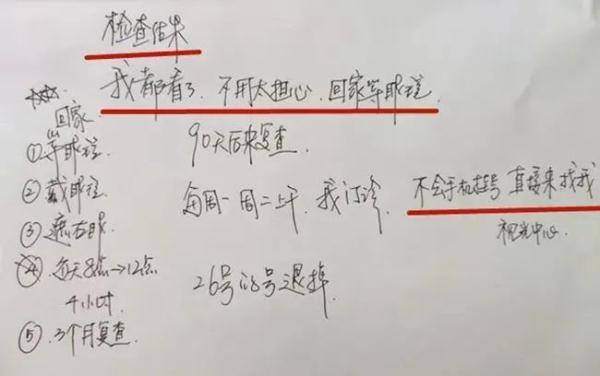 检查结果
我都看了、不用太担心、回家等眼镜
回家
①等眼镜
②戴眼镜
③遮右眼
④每天8点→12点
4小时
⑤.3个月复查.
90天后来复查.
每周一周二上午、我门诊.
不会手机挂号 直接来找我
视光中心.
26号的号退掉.